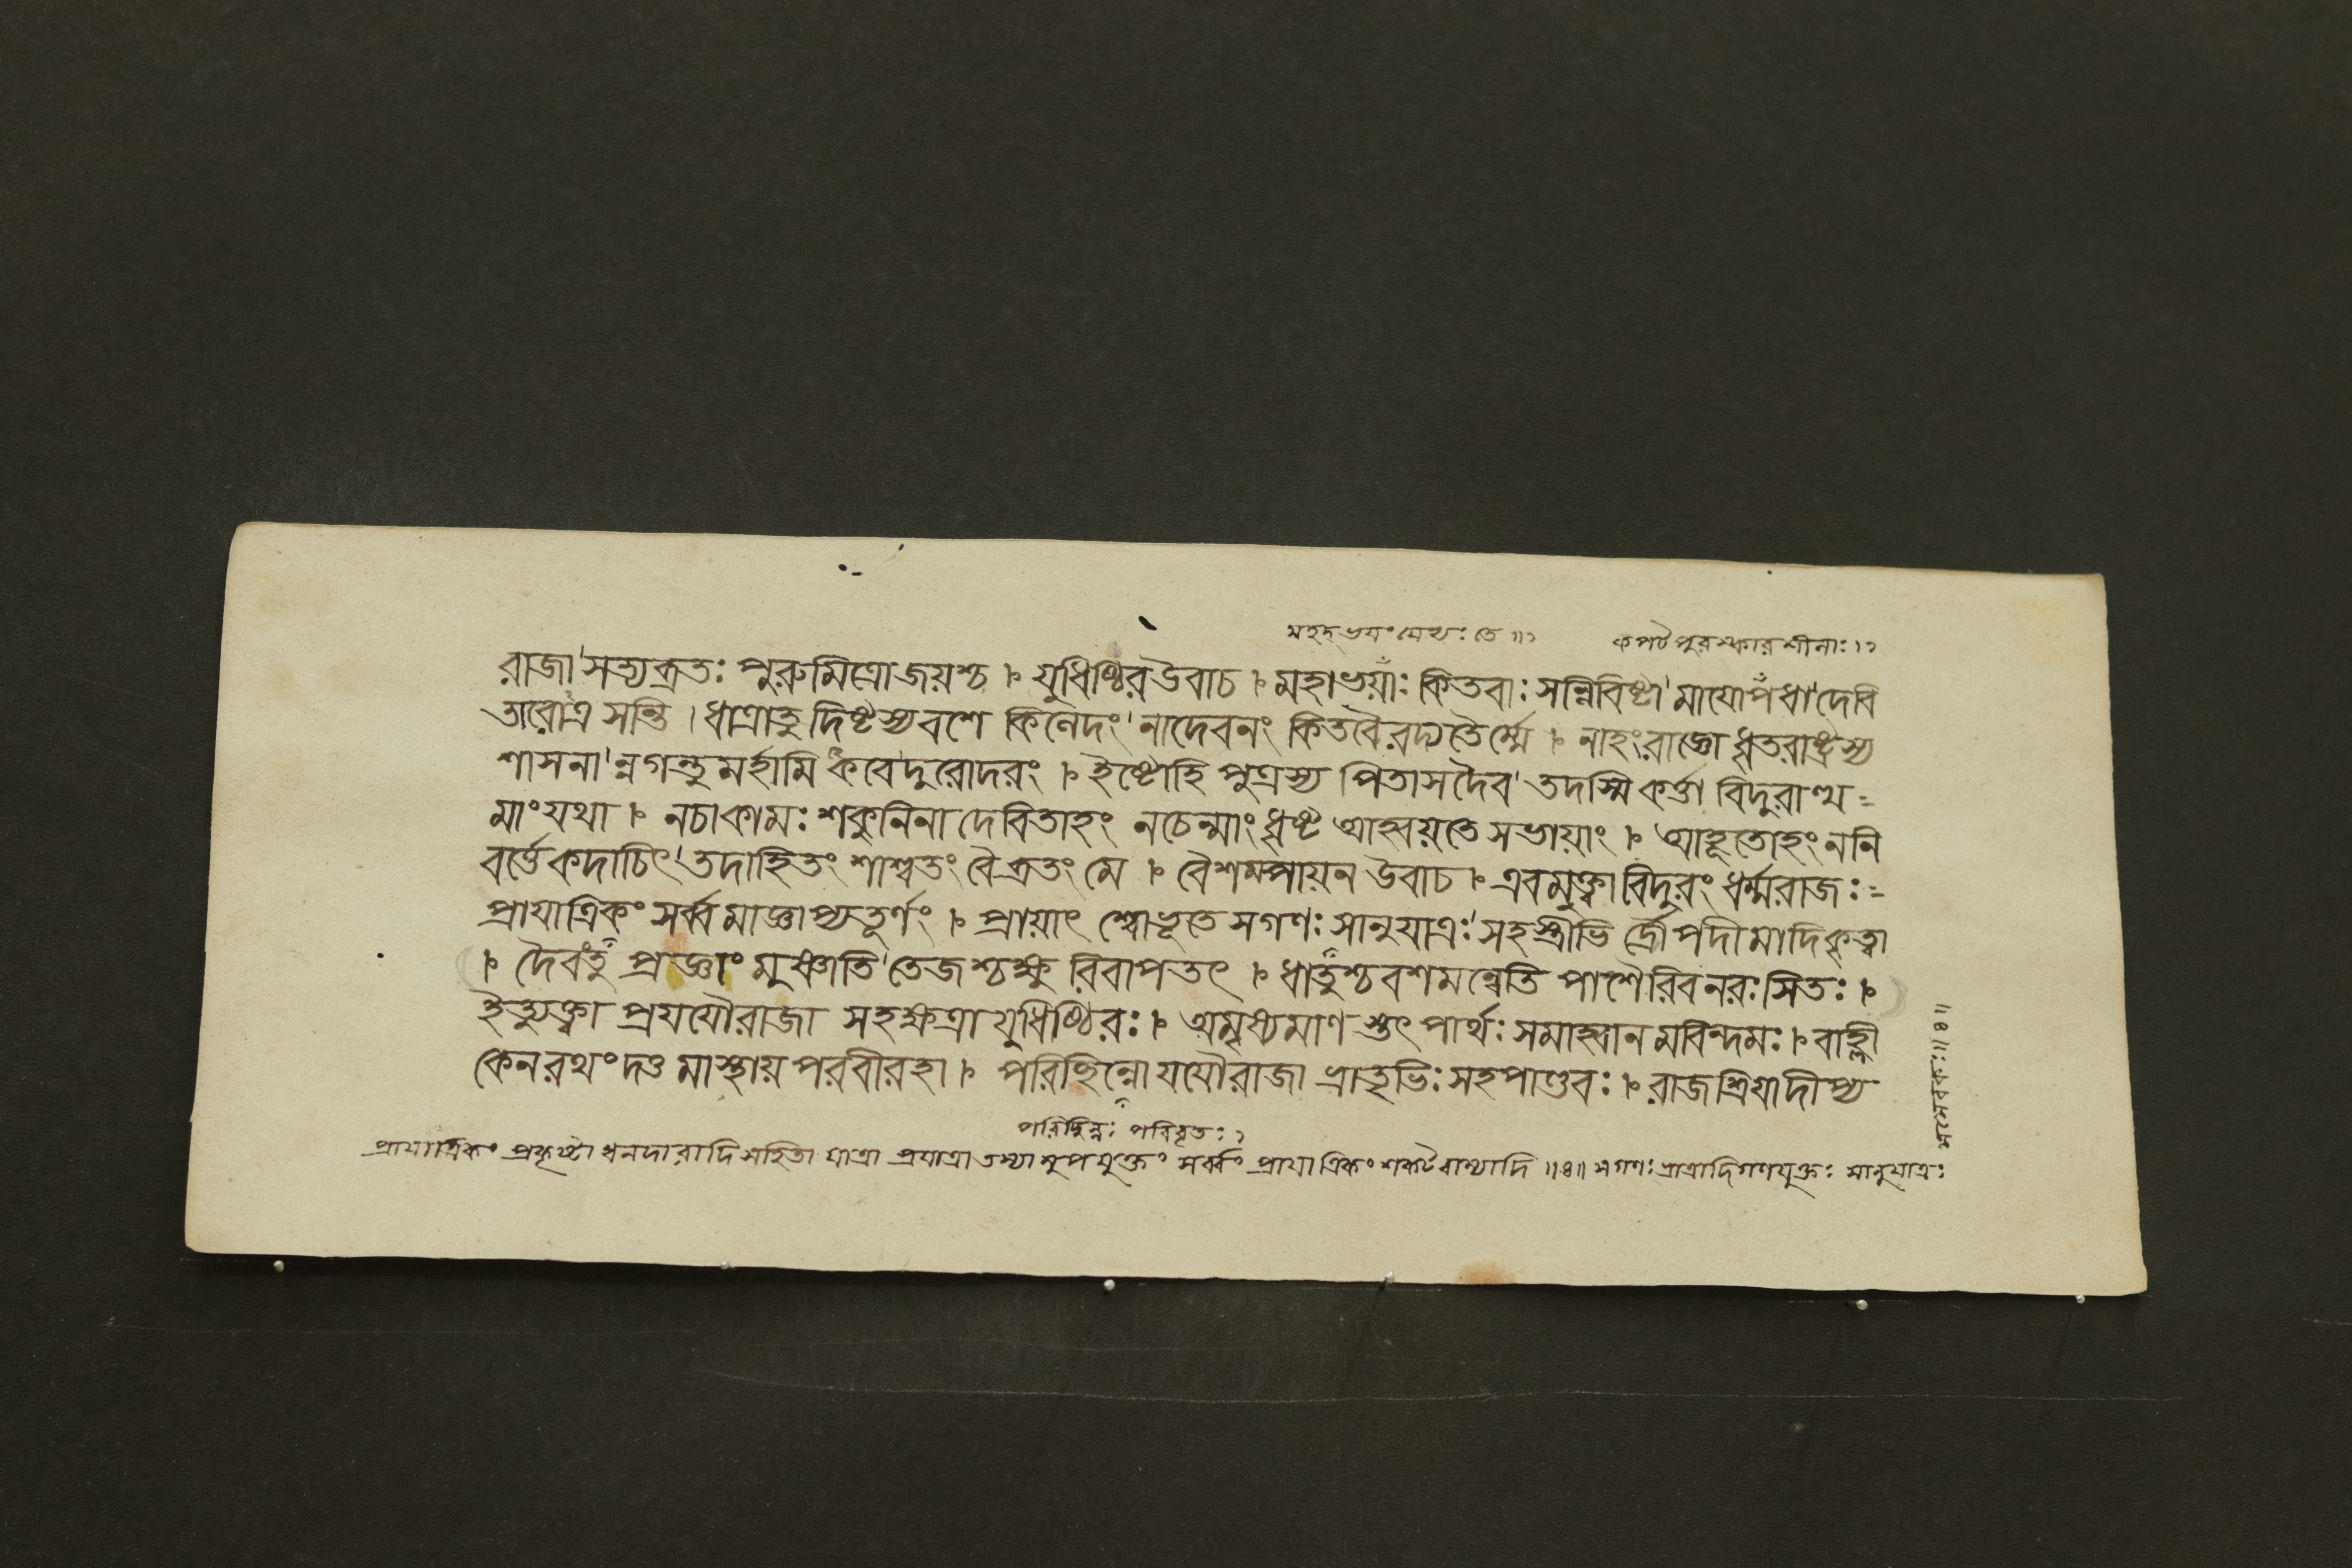 মহদ্ভয়ং যেভ্যঃ তে ॥১ কপটপুরস্কারশীলাঃ ।১
রাজা সত্যব্রতঃ পুরুমিত্রো জয়শ্চ । যুধিষ্ঠির উবাচ । মহাভয়াঃ কিতবাঃ সন্নিবিষ্টা মায়োপধা দেবি
তারোত্র সন্তি । ধাত্রাতু দিষ্টস্য বশে কিলেদং নাদেবনং কিতবৈরদ্য তৈর্ম্মে । নাহং রাজ্ঞো ধৃতরাষ্ট্রস্য
শাসনা ন্নগন্তু মর্হামি কবে দুরোদরং । ইষ্টোহি পুত্রস্য পিতা সদৈব তদস্মি কর্ত্তা বিদুরাত্থ =
মাং যথা । নচাকামঃ শকুনিনা দেবিতাহং নচেন্মাং ধৃষ্ট আহ্বয়তে সভায়াং । আহূতোহং ননি
বর্ত্তে কদাচিৎ তদাহিতং শাশ্বতং বৈ ব্রতং মে । বৈশম্পায়ন উবাচ । এবমুক্ত্বা বিদুরং ধর্ম্মরাজঃ =
প্রাযাত্রিকং সর্ব্বমাজ্ঞাপ্য তূর্ণং । প্রায়াৎ শ্বোভূতে সগণঃ সানুযাত্রঃ সহস্ত্রীভি র্দ্রৌপদীমাদিকৃত্বা
। দৈবন্তু প্রজ্ঞাং মুষ্ণাতি তেজশ্চক্ষু রিবাপতৎ । ধাতুশ্চ বশমন্বেতি পাশৈরিব নরঃ সিতঃ ।
ইত্যুক্ত্বা প্রযযৌ রাজা সহ ক্ষত্রা যুধিষ্ঠিরঃ । অমৃষ্যমাণ স্তৎ পার্থঃ সমাহ্বান মরিন্দমঃ । বাহ্লী
কেন রথং দত্ত মাস্থায় পরবীরহা । পরিচ্ছিন্নো যযৌ রাজা ভ্রাতৃভিঃ সহ পাণ্ডবঃ । রাজশ্রিয়া দীপ্য
পরিচ্ছিন্নঃ পরিবৃতঃ ১
প্রাযাত্রিকং প্রকৃষ্টা ধনদারাদি সহিতা যাত্রা প্রযাত্রা তস্যা মুপযুক্তং সর্ব্বং প্রাযাত্রিকং শকটবাহ্যাদি ॥৪॥ সগণঃ ভ্রাত্রাদিগণযুক্তঃ সানুযাত্রঃ
সসেবকঃ ॥৪॥